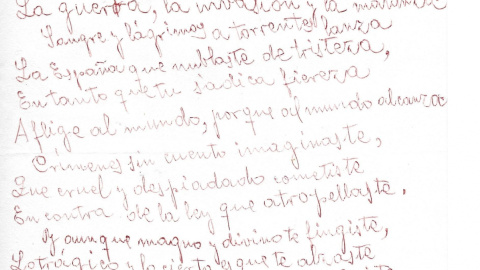 La guerra, la invasión y la matanza
Sangre y lágrimas a torrentes lanza
La España que nublaste de tristeza,
En tanto que tu sádica fiereza
Aflige al mundo, porque al mundo alcanza
Crímenes sin cuento imaginaste,
Que cruel y despiadado cometiste
En contra de la ley que atropellaste.
Y aunque magno y divino te fingiste,
Lo trágico y lo cierto es que te alzaste